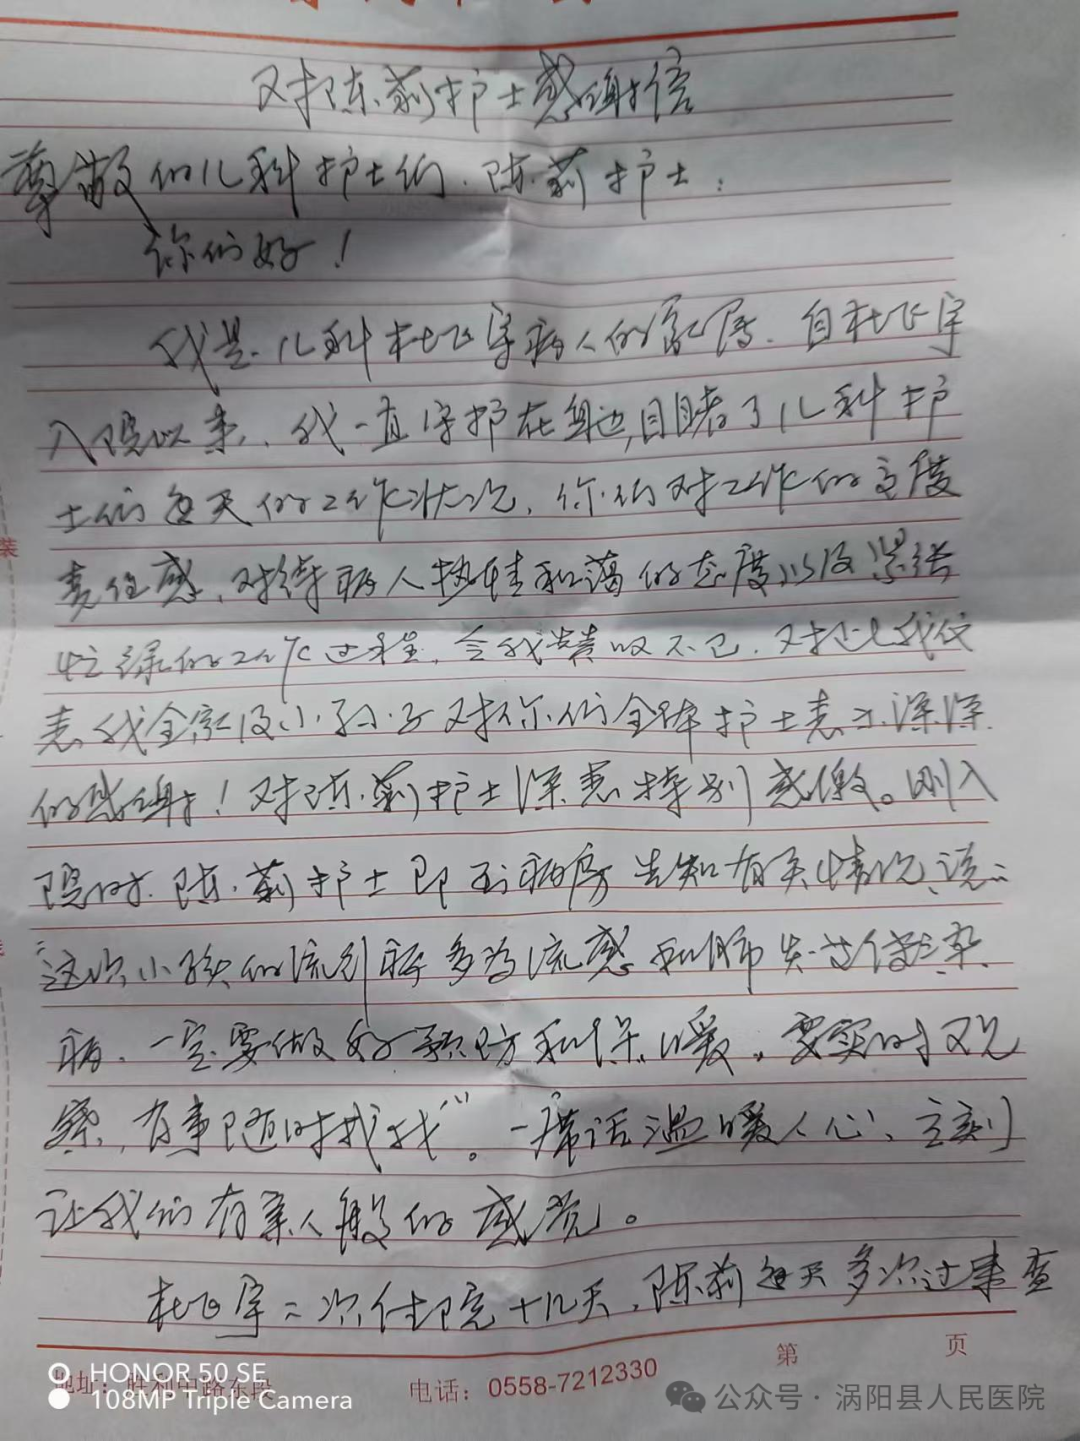 对陈莉护士感谢信
尊敬的儿科护士们、陈莉护士：
你们好！
我是儿科杜飞宇病人的家属、自杜飞宇
入院以来，我一直守护在身边，目睹了儿科护
士们每天的工作状况，你们对工作的高度
责任感、对待病人热情和蔼的态度以及紧张
忙碌的工作过程，令我赞叹不已，对此我代
表我全家及小孙子对你们全体护士表示深深
的感谢！对陈莉护士深表特别感激。刚入
院时陈莉护士即到病房告知有关情况、说：
“这次小孩的流行病多为流感和肺炎过传染
病、一定要做好预防和保暖，要实时观
察，有事随时找我”。一席话温暖人心、立刻
让我们有亲人般的感觉。
杜飞宇二次住院十几天，陈莉每天多次过来查
装
第 页
地址：胜利中路东段
电话：0558-7212330
HONOR 50 SE
108MP Triple Camera
公众号·涡阳县人民医院